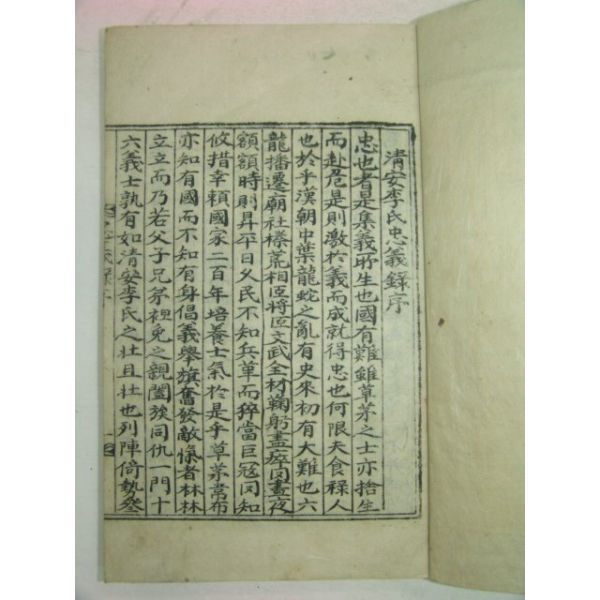 清安李氏忠義錄序
忠也者是集義所生也國有難雖草茅之士亦捨生
而赴危是則激於義而成就得忠也何限夫食祿人
也於乎漢朝中葉龍蛇之亂有史來初有大難也六
龍播遷廟社榛荒相臣將臣文武全材鞠躬盡瘁罔晝夜
額額時則昇平日久民不知兵革而猝當巨寇罔知
攸措幸賴國家二百年培養士氣於是乎草茅韋布
亦知有國而不知有身倡義擧旗奮發敵愾者林林
立立而乃若父子兄弟袒免之親闔族同仇一門十
六義士孰有如清安李氏之壯且壯也列陣倚勢